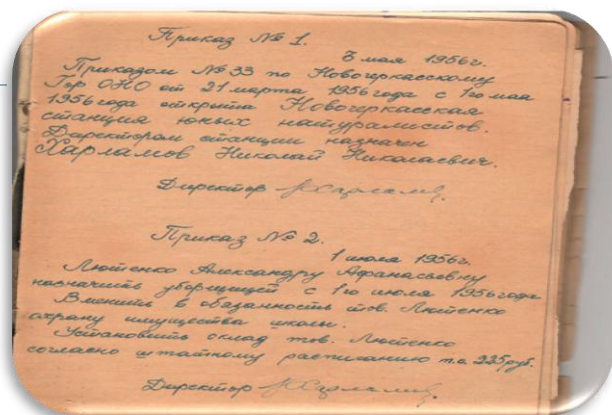 Приказ № 1.
8 мая 1956г.
Приказом № 33 по Новочеркасскому
Гор ОНО от 21 марта 1956 года с 1го мая
1956 года открыта Новочеркасская
станция юных натуралистов.
Директором станции назначен
Харламов Николай Николаевич.
Директор
Приказ № 2.
1 июля 1956г.
Лютенко Александру Афанасьевну
назначить уборщицей с 1го июля 1956 года
Вменить в обязанность тов. Лютенко
охрану имущества школы.
Установить оклад тов. Лютенко
согласно штатному расписанию т.е. 225 руб.
Директор